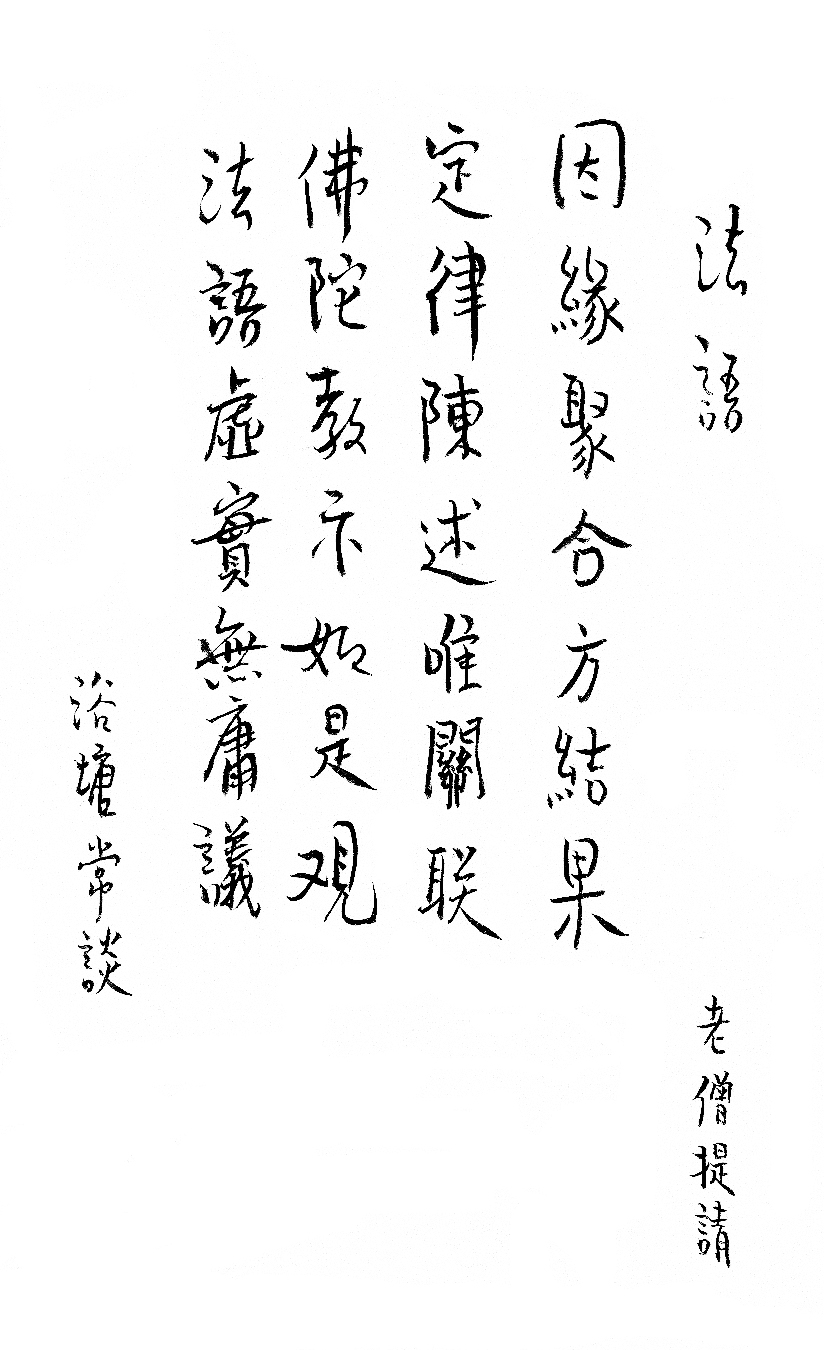 法語
老僧提請
因緣聚合方結果
定律陳述唯關联
佛陀教示如是观
法語虛實無庸議
浴塘常談